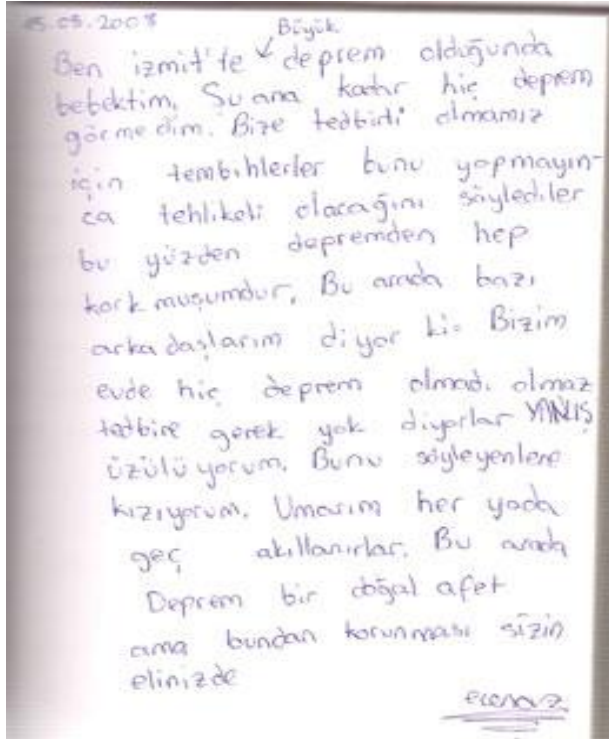 15.09.2008
Büyük
Ben izmit'te deprem olduğunda
bebektim. Şu ana kadar hiç deprem
görmedim. Bize tedbirli olmamız
için tembihlerler bunu yapmayın-
ca tehlikeli olacağını söylediler
bu yüzden depremden hep
korkmuşumdur. Bu arada bazı
arkadaşlarım diyor ki= Bizim
evde hiç deprem olmadı olmaz
tedbire gerek yok diyorlar YANLIŞ
üzülüyorum. Bunu söyleyenlere
kızıyorum. Umarım her yada
geç akıllanırlar. Bu arada
Deprem bir doğal afet
ama bundan korunması sizin
elinizde
ecenaz